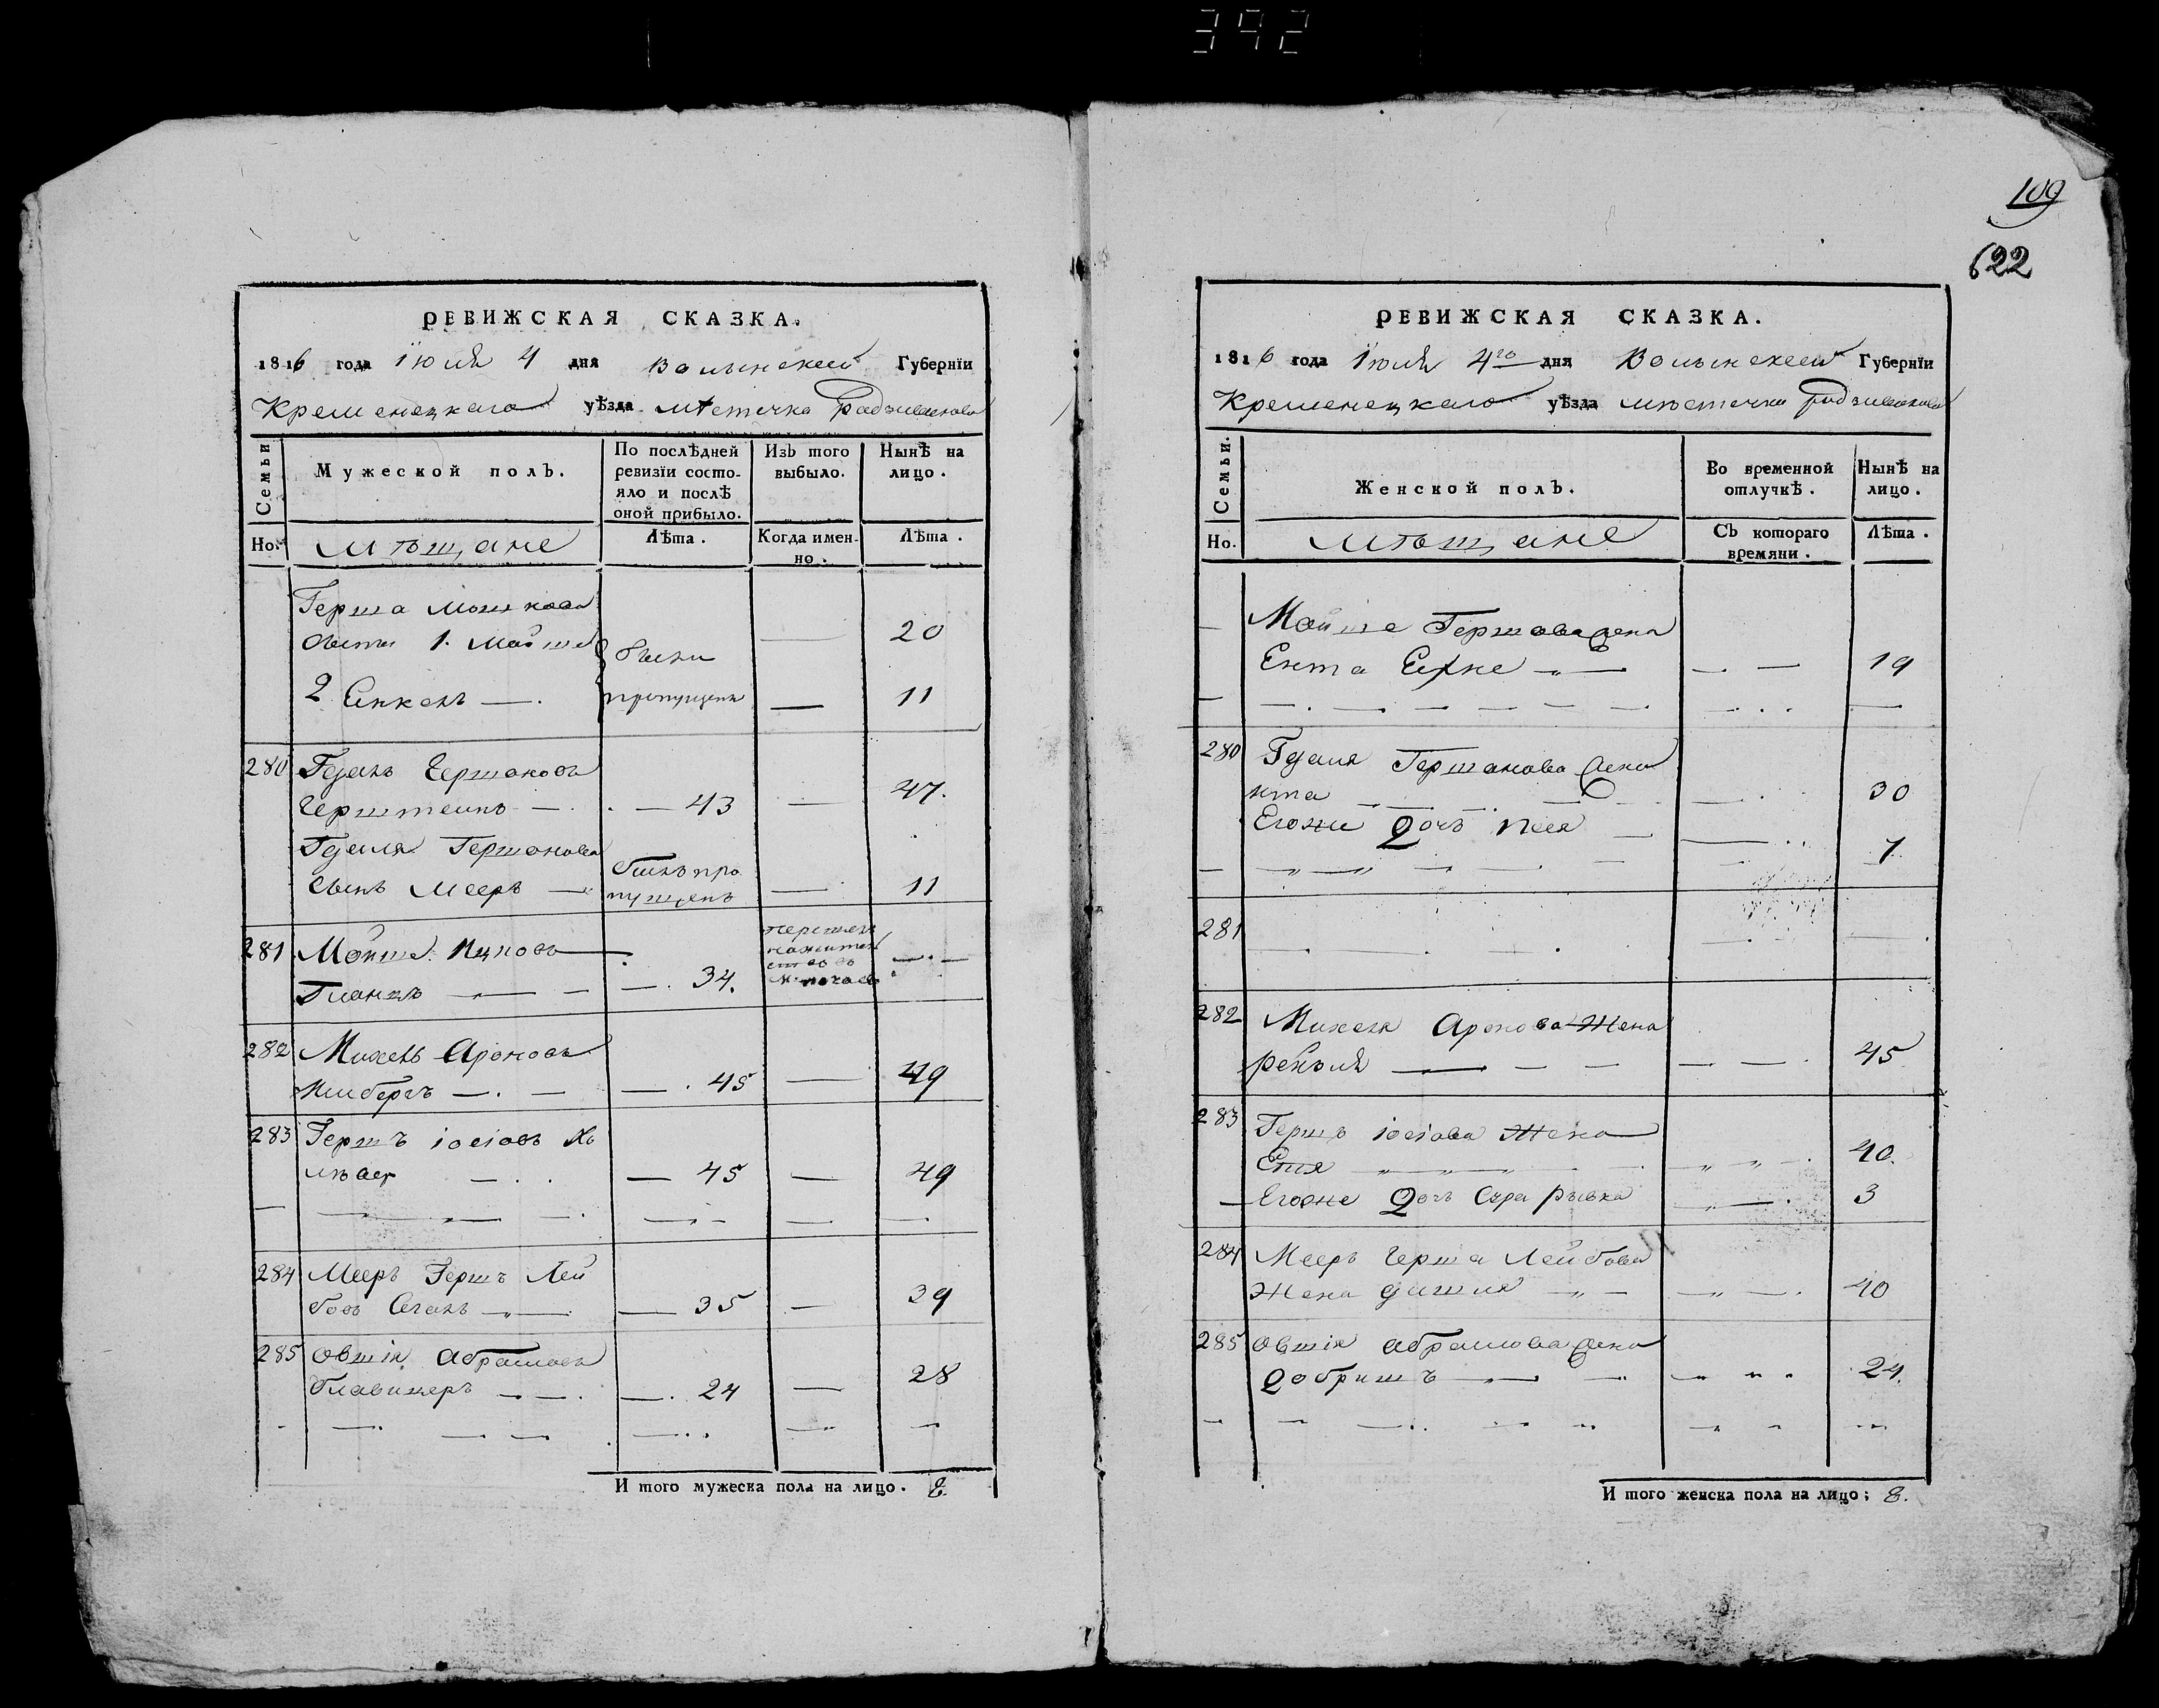 392
109
622
РЕВИЖСКАЯ СКАЗКА.
1816 года Iюля 4 дня Волынской Губернїи
Кременецкаго уѣзда мѣстечка Радзивилова
Семьи
Мужеской полъ.
По послѣдней ревизїи состо-
яло и послѣ
оной прибыло.
Изъ того
выбыло.
Нынѣ на
лицо.
Но.
мѣщане
Лѣта.
Когда имен-
но.
Лѣта.
Герша Мошкова
1. Мойше 20
2 Енкель — 11
пропущены
280 Гдаль Гершоновъ
— 43 — 47.
Гдаля Гершонова
сынъ Мееръ — 11
пропущенъ
281 Мойше Ицковъ
— 34.
282 Михель Ароновъ
— 45 — 49
283 Гершъ Iосiовъ
— 45 — 49
284 Мееръ Гершъ Лей
бовъ Сегаль — 35 — 39
285 Овшiя Абрамовъ
— 24 — 28
И того мужеска пола на лицо. 8.
РЕВИЖСКАЯ СКАЗКА.
1816 года Iюля 4го дня Волынской Губернїи
Кременецкаго уѣзда мѣстечка Радзивилова
Семьи.
Женской полъ.
Во временной
отлучкѣ.
Нынѣ на
лицо.
Но.
мѣщане
Съ котораго
времяни.
Лѣта.
Мойше Гершова жена
Ента — 19
280 Гдаля Гершонова жена
30
Егоже дочь Песя
1
281
282 Михеля Аронова Жена
Рейзля — 45
283 Гершъ Iосiова Жена
40.
Егоже дочь Сура Рывка 3
284 Мееръ Герша Лейбова
Жена — 40
285 Овшiя Абрамова жена
Добришъ — 24.
И того женска пола на лицо; 8.